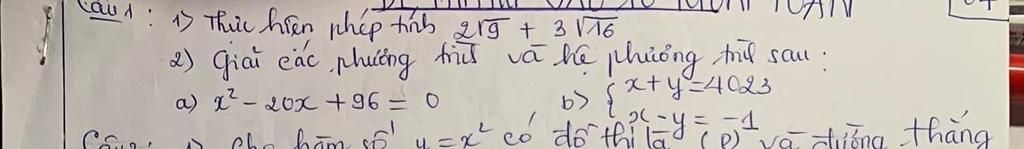 Câu 1 : 1) Thực hiện phép tính 2√9 + 3√16
2) Giải các phương trình và hệ phương trình sau :
a) x² - 20x + 96 = 0 b) { x + y = 4023
x - y = -1
1) Cho hàm số y = x² có đồ thị là (P) và đường thẳng